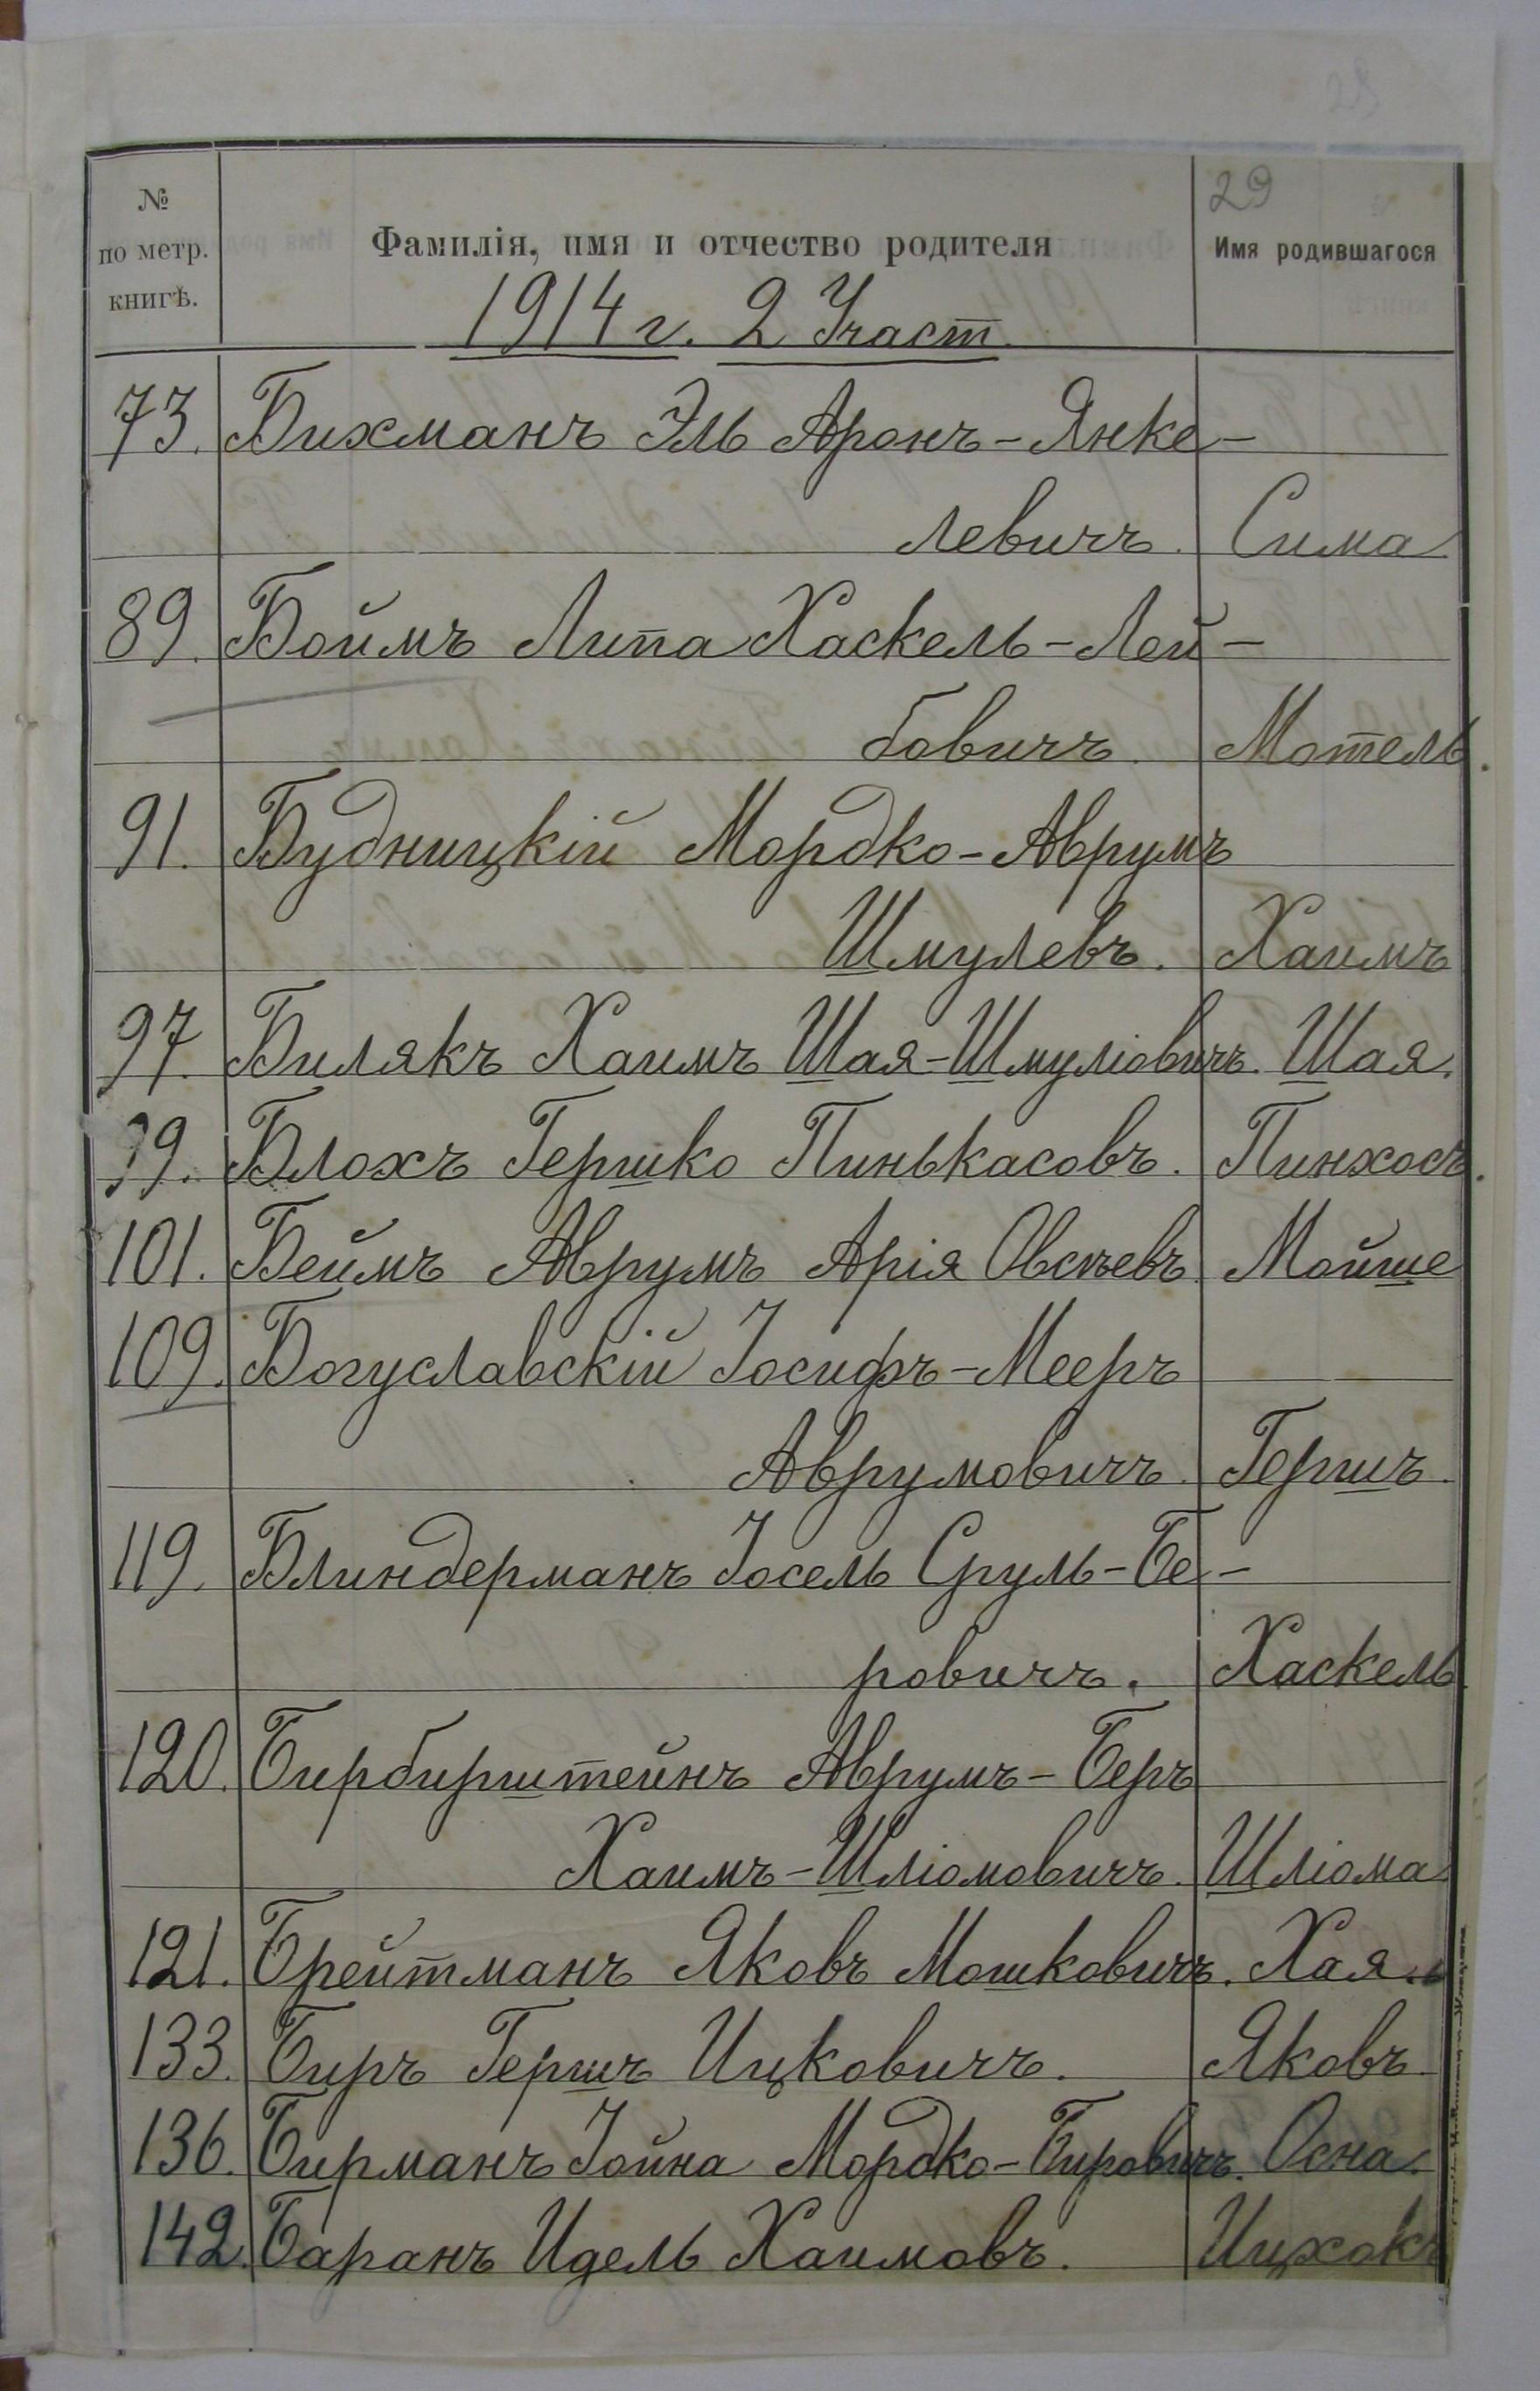 29
№ по метр. книгѣ.
Фамилія, имя и отчество родителя
Имя родившагося
1914 г. 2 Участ.
73. Бихманъ Эль Аронъ-Янке-
левичъ. Сима
89. Боймъ Липа Хаскель-Лей-
бовичъ. Мотель.
91. Будницкій Мордко-Аврумъ
Шмулевъ. Хаимъ
97. Билякъ Хаимъ Шая-Шмуліовичъ. Шая.
99. Блохъ Гершко Пинькасовъ. Пинхосъ.
101. Беймъ Аврумъ Арія Овсѣевъ. Мойше
109. Богуславскій Іосифъ-Мееръ
Аврумовичъ. Гершъ.
119. Блиндерманъ Іосель Сруль-Бе-
ровичъ. Хаскель.
120. Бирбирштейнъ Аврумъ-Беръ
Хаимъ-Шліомовичъ. Шліома
121. Брейтманъ Яковъ Мошковичъ. Хая.
133. Биръ Гершъ Ицковичъ. Яковъ.
136. Бирманъ Іойна Мордко-Бировичъ. Осна.
142. Баранъ Идель Хаимовъ. Ицхокъ